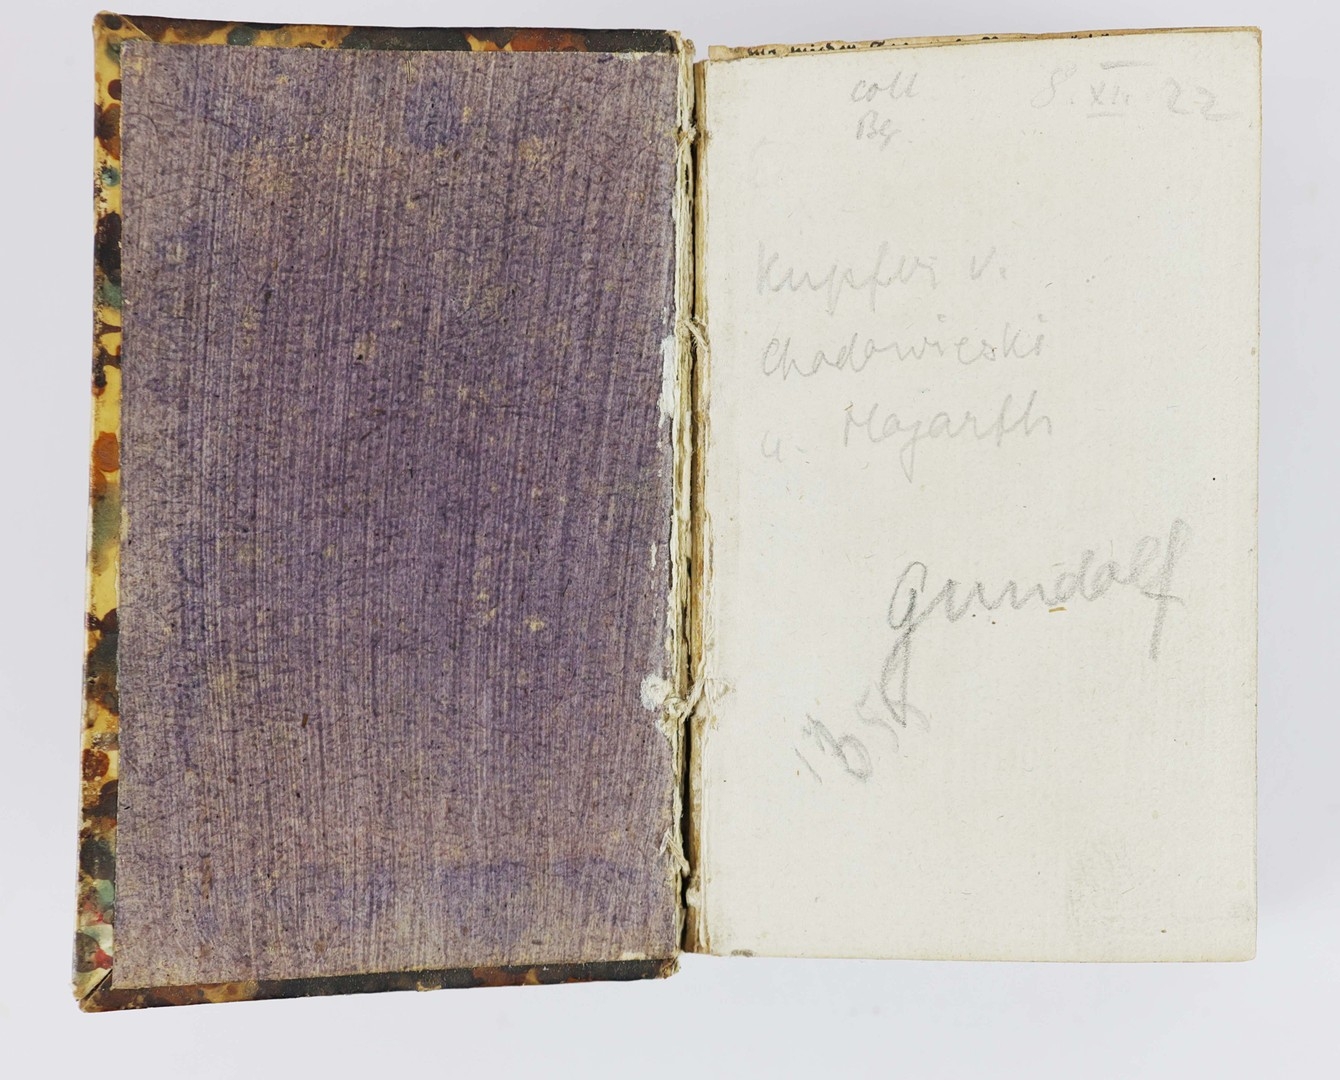 coll 8. XII. 22
Bg.
Kupfer v.
Chodowiecki
u. Hogarth
Gundolf